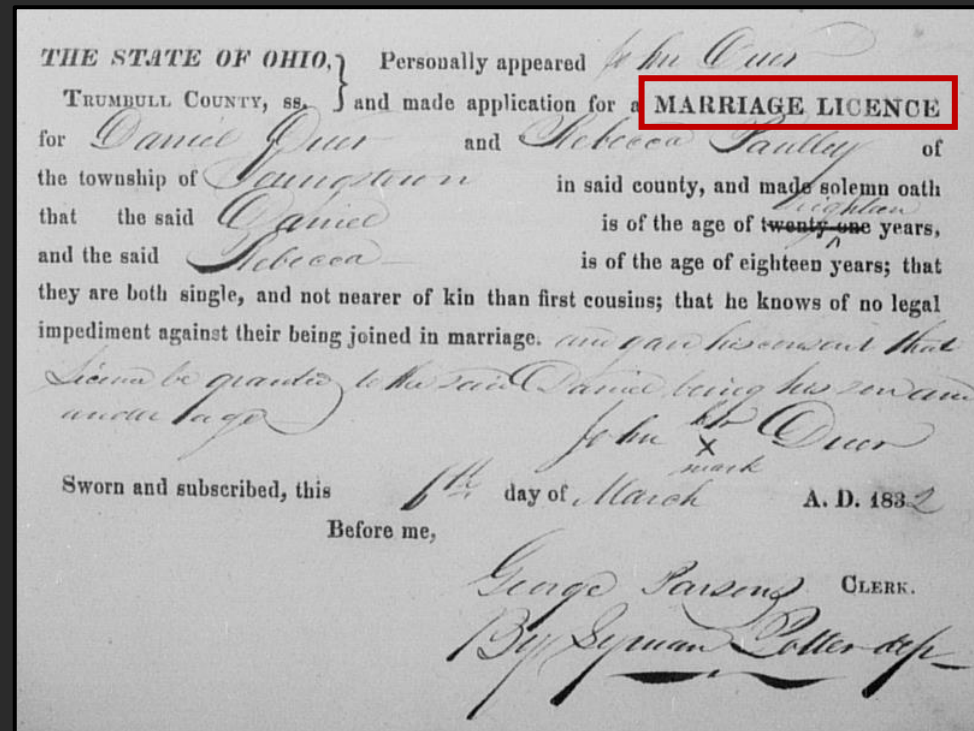 THE STATE OF OHIO, } Personally appeared John Duer
TRUMBULL COUNTY, ss. } and made application for a MARRIAGE LICENCE
for Daniel Duer and Rebecca Paulley of
the township of Youngstown in said county, and made solemn oath
eighteen
that the said Daniel is of the age of twenty-one years,
and the said Rebecca is of the age of eighteen years; that
they are both single, and not nearer of kin than first cousins; that he knows of no legal
impediment against their being joined in marriage. and gave his consent that
License be granted to the said Daniel being his son and
under age
John his Duer
X
mark
Sworn and subscribed, this 6th day of March A. D. 1832
Before me,
George Parsons CLERK.
By Lyman Potter dep